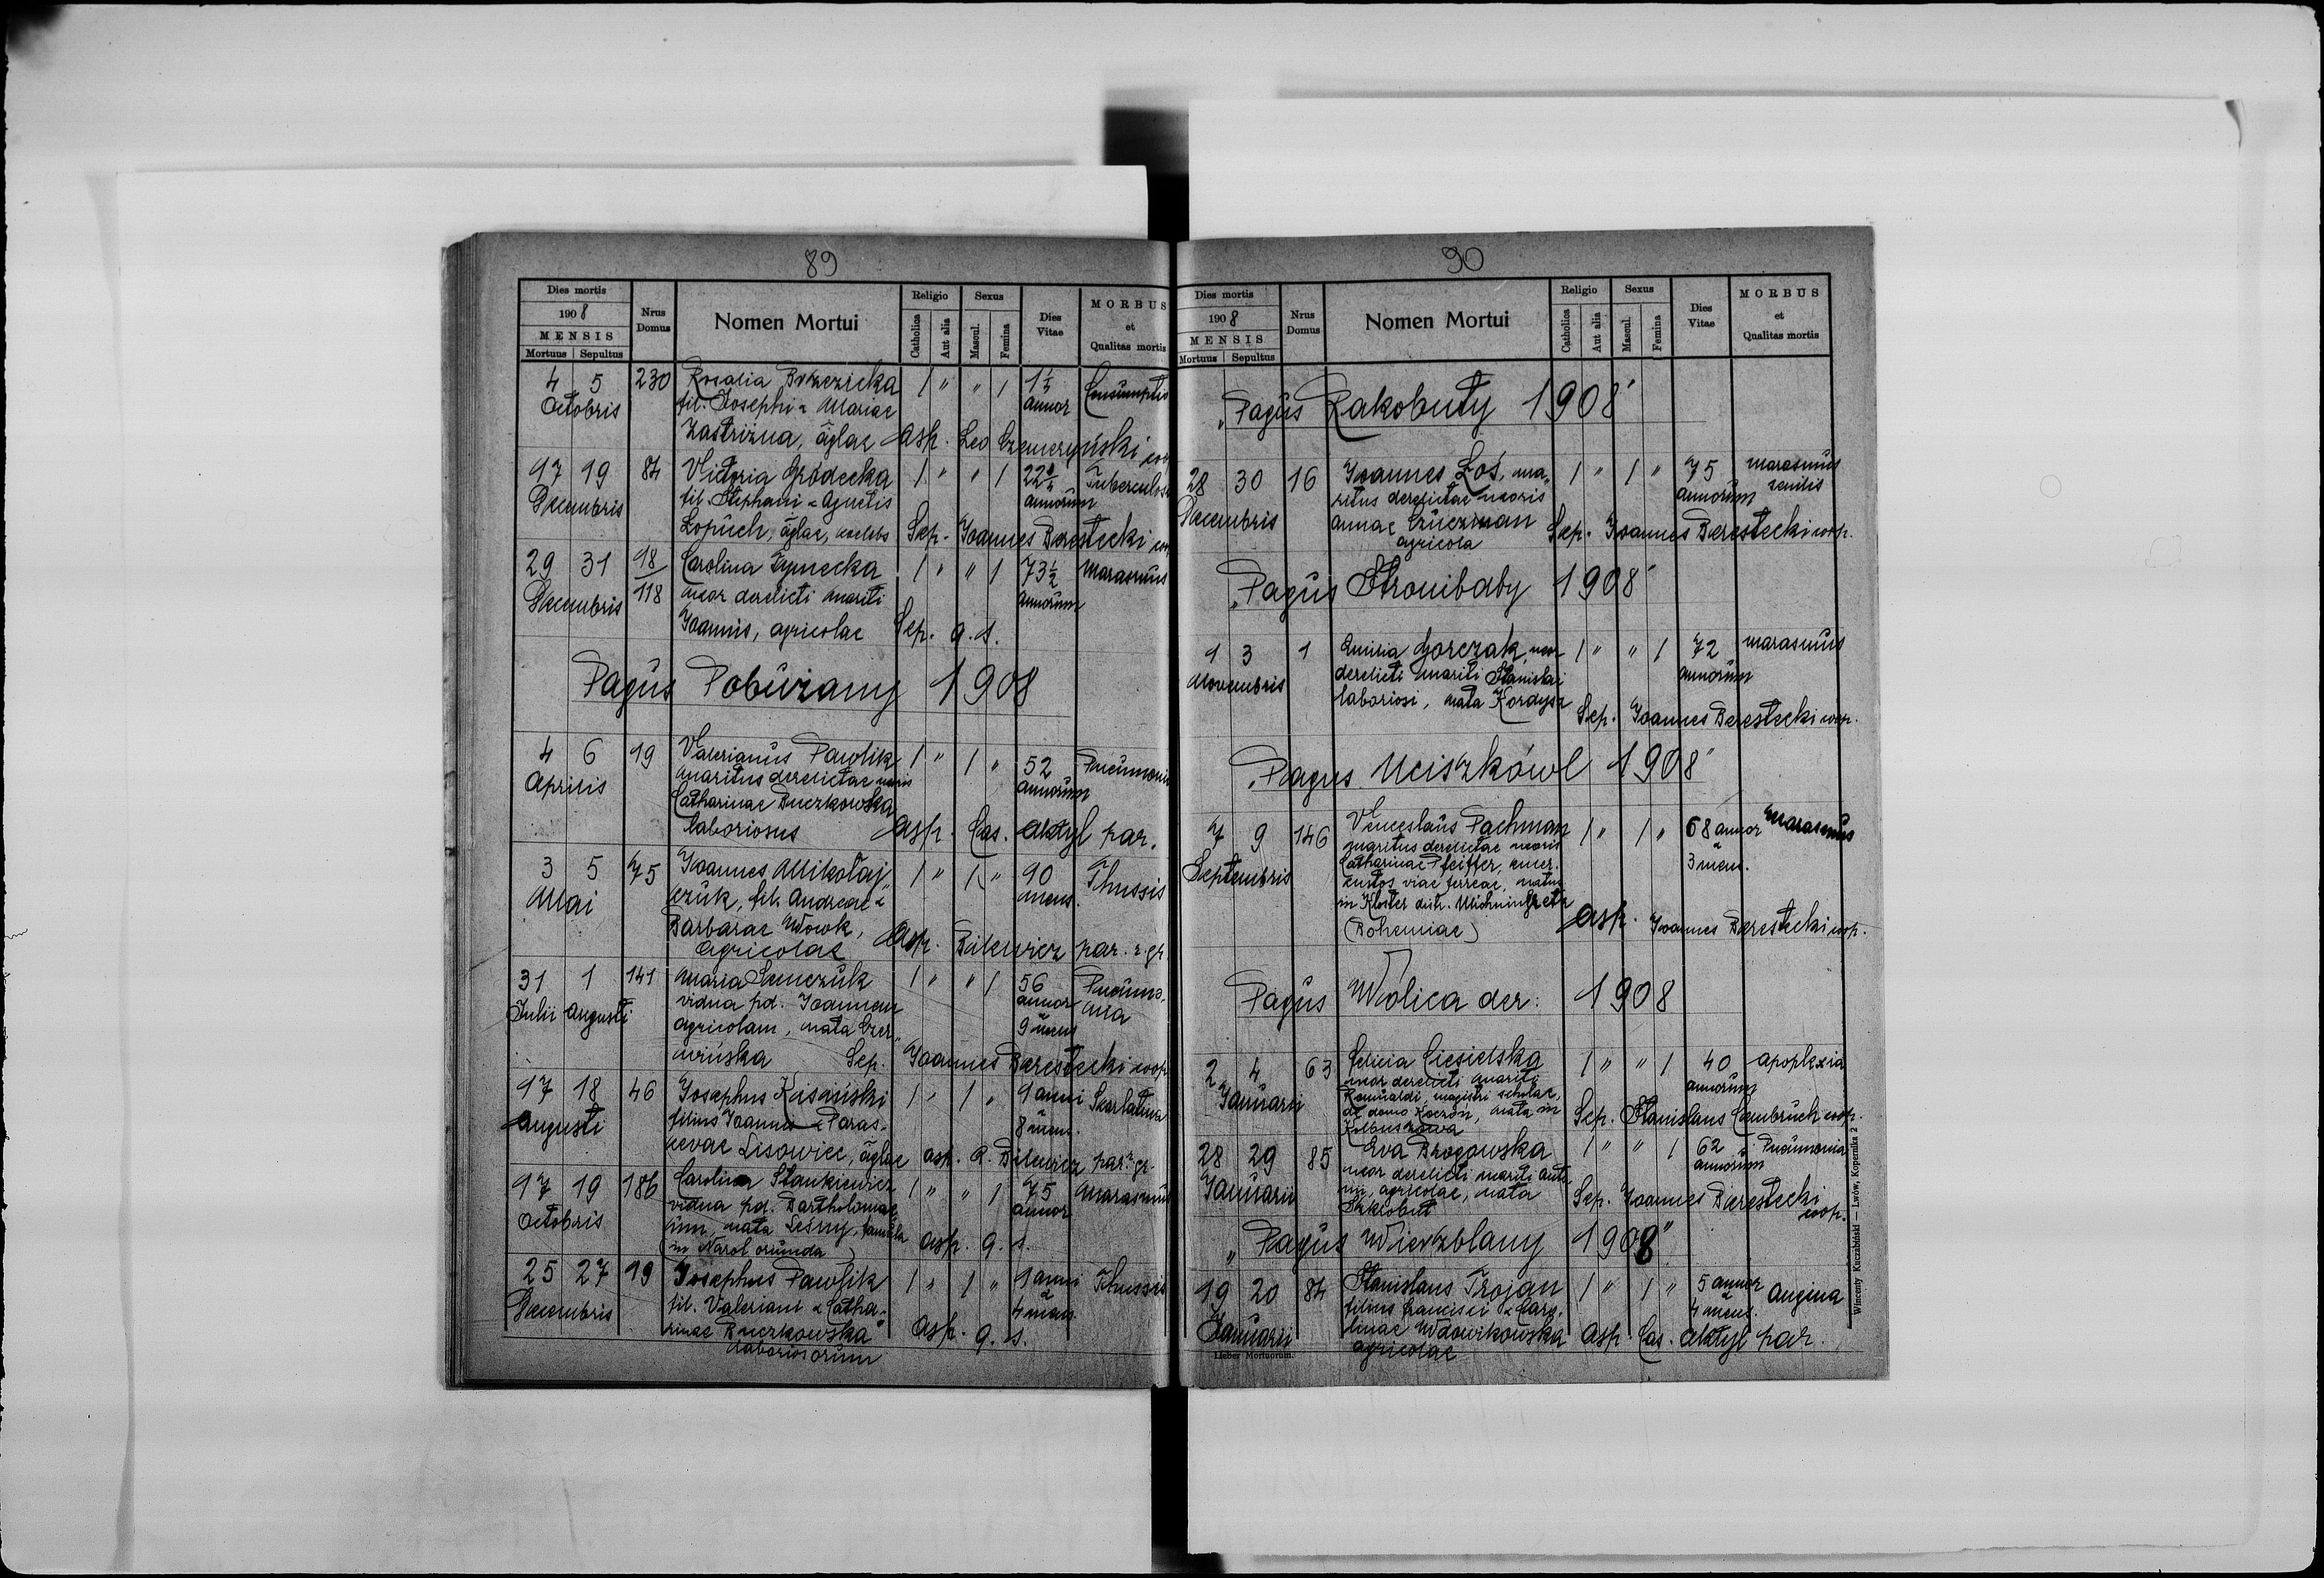 89
Dies mortis
1908
MENSIS
Mortuus Sepultus
Nrus Domus
Nomen Mortui
Religio
Catholica Aut alia
Sexus
Mascul. Femina
Dies Vitae
MORBUS
et
Qualitas mortis
4 5 230 Rosalia Brzezicka 1 " " 1 1½ Consumptio
Octobris fil. Josephi & Mariae annor
Zastrizna, aglae Asp. Leo Czemeryński coop
17 19 84 Victoria Gródecka 1 " " 1 22½ Tuberculosa
Decembris fil. Stephani & Agnetis annorum
Łopuch, aglae, coelebs Sep. Joannes Berestecki coop
29 31 18/118 Carolina Zymecka 1 " " 1 73½ Marasmus
Decembris uxor derelicti mariti annorum
Joannis, agricolae Sep. q. s.
Pagus Pobużany 1908
4 6 19 Valerianus Pawlik 1 " 1 " 52 Pneumonia
Aprilis maritus derelictae uxoris annorum
Catharinae Buczkowska
laboriosus Asp. Cas. Aktyl par.
3 5 75 Joannes Mikołaj 1 " 1 " 90 Thussis
Mai czuk, fil. Andreae & mens.
Barbarae Wowk,
agricolae Asp. Bilewicz par. r. gr.
31 1 141 Maria Semczuk 1 " " 1 56 Pneumo-
Julii Augusti vidua pd. Joannem annor nia
agricolam, nata Czer- 9 mens
wińska Sep. Joannes Berestecki coop
17 18 46 Josephus 1 " 1 " 9 anni Skarlatina
Augusti filius Joannis & Paras- 8 mens.
cevae Lisowiec, aglae asp. A. Bilewicz par. r. gr.
17 19 186 Carolina Stankiewicz 1 " " 1 75 Marasmus
Octobris vidua pd. Bartholomae annor
um, nata Leśny, famula
(in Narol oriunda) asp. q. s.
25 27 19 Josephus Pawlik 1 " 1 " 1 anni Thussis
Decembris fil. Valeriani & Catha- & 4 mens.
rinae Buczkowska asp. q. s.
laboriosorum
90
Dies mortis
1908
MENSIS
Mortuus Sepultus
Nrus Domus
Nomen Mortui
Religio
Catholica Aut alia
Sexus
Mascul. Femina
Dies Vitae
MORBUS
et
Qualitas mortis
"Pagus Rakobuty 1908"
28 30 16 Joannes Łoś, ma- 1 " 1 " 75 marasmus
Decembris ritus derelictae uxoris annorum senilis
Annae Czuczman Sep. Joannes Berestecki coop.
agricola
"Pagus Stronibaby 1908"
1 3 1 Emilia Gorczak, uxor 1 " " 1 72 marasmus
Novembris derelicti mariti Stanislai annorum
laboriosi, nata Kordysz Sep. Joannes Berestecki coop.
"Pagus Uciszków 1908"
7 9 146 Venceslaus Pachman 1 " 1 " 68 annor marasmus
Septembris maritus derelictae uxoris & 3 mens.
Catharinae Pfeiffer, emer.
custos viae ferreae, natus
in Kloster distr.
(Bohemiae) Asp. Joannes Berestecki coop.
Pagus Wolica der: 1908
2 4 63 Felicia Ciesielska 1 " " 1 40 apoplexia
Januarii uxor derelicti mariti annorum
Romualdi, magistri scholae,
de domo Koczoń, nata in Sep. Stanislaus Cembruch coop.
Kolbuszowa
28 29 85 Eva Brogowska 1 " " 1 62 Pneumonia
Januarii uxor derelicti mariti Anto annorum
nii, agricolae, nata Sep. Joannes Berestecki
Szkrobut coop.
"Pagus Wierzblany 1908"
19 20 84 Stanislaus Trojan 1 " 1 " 5 annor Angina
Januarii filius Francisci & Caro- & 4 mens.
linae Wdowikowska Asp. Cas. Aktyl par.
agricolae
Lieber Mortuorum.
Wincenty Kuczabiński — Lwów, Kopernika 2